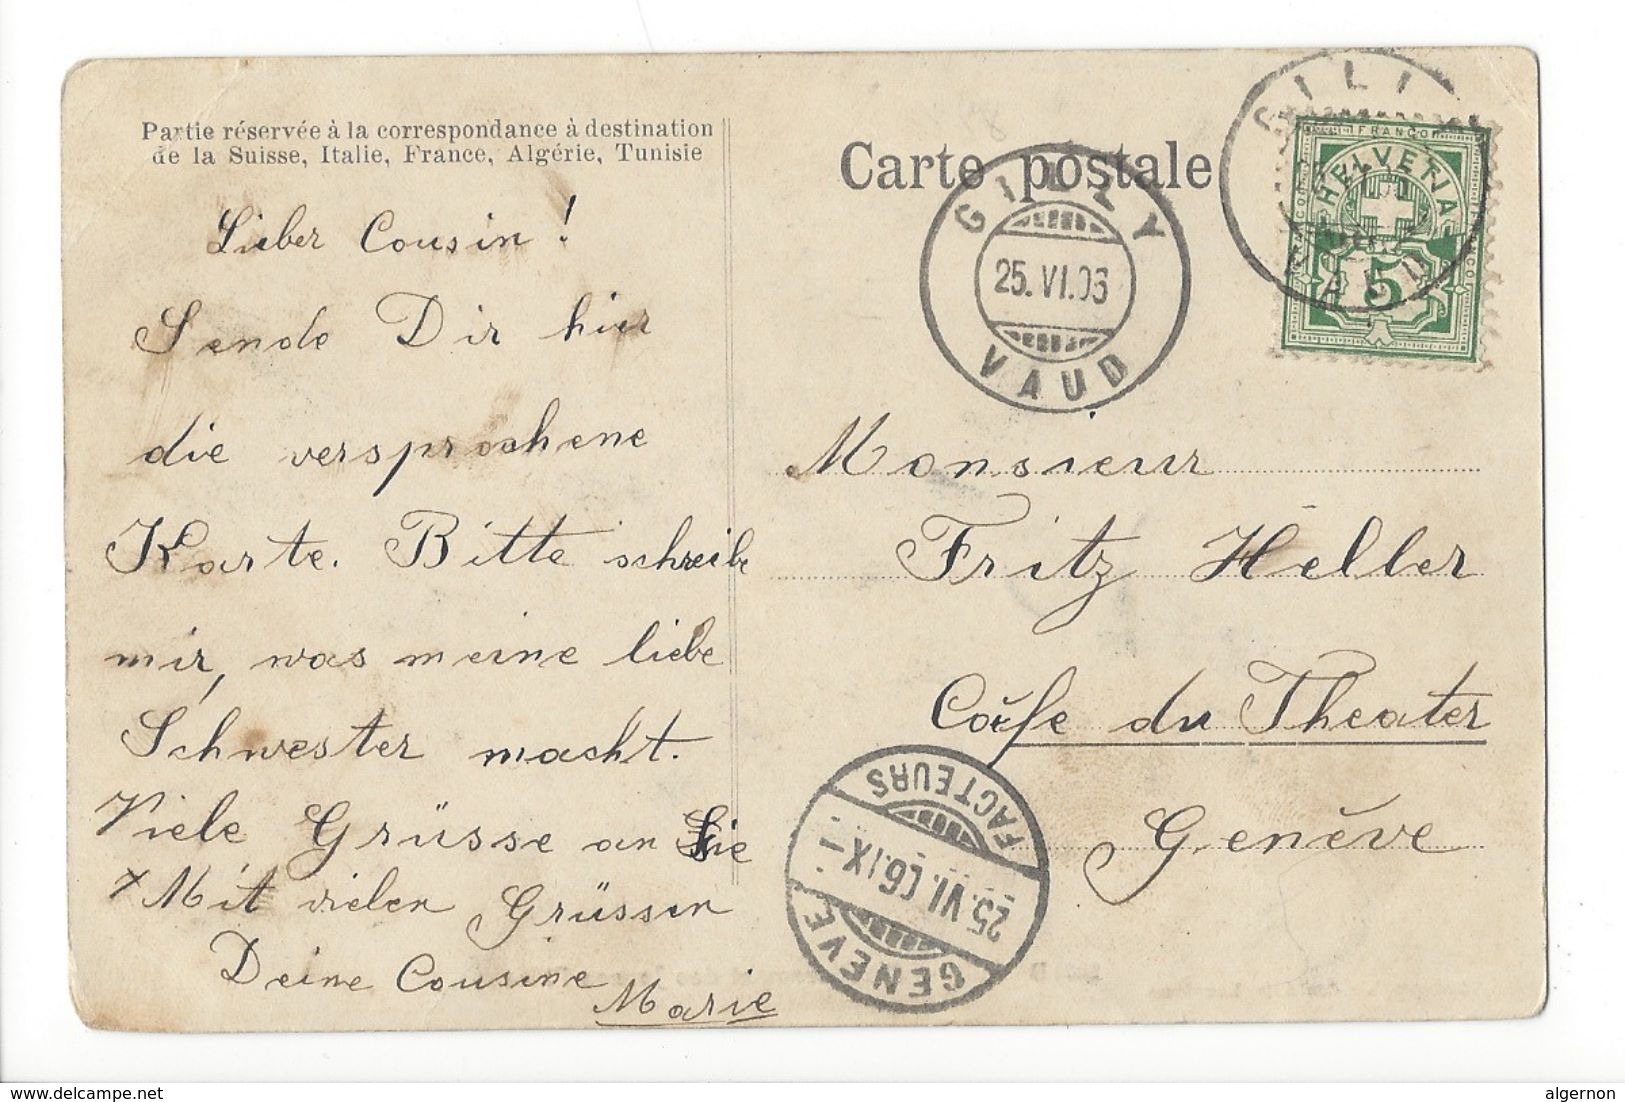 Partie réservée à la correspondance à destination
de la Suisse, Italie, France, Algérie, Tunisie
Carte postale
Lieber Cousin!
Sende Dir hier
die versprochene
Karte. Bitte schreibe
mir, was meine liebe
Schwester macht.
Viele Grüsse an Sie
Mit vielen Grüssen
Deine Cousine
Marie
GILLY
25.VI.06
VAUD
FRANCO
HELVETIA
5
Monsieur
Fritz Heller
Caffe du Theater
Genève
FACTEURS
25.VI.06.IX
GENEVE
Delcampe.net
algernon